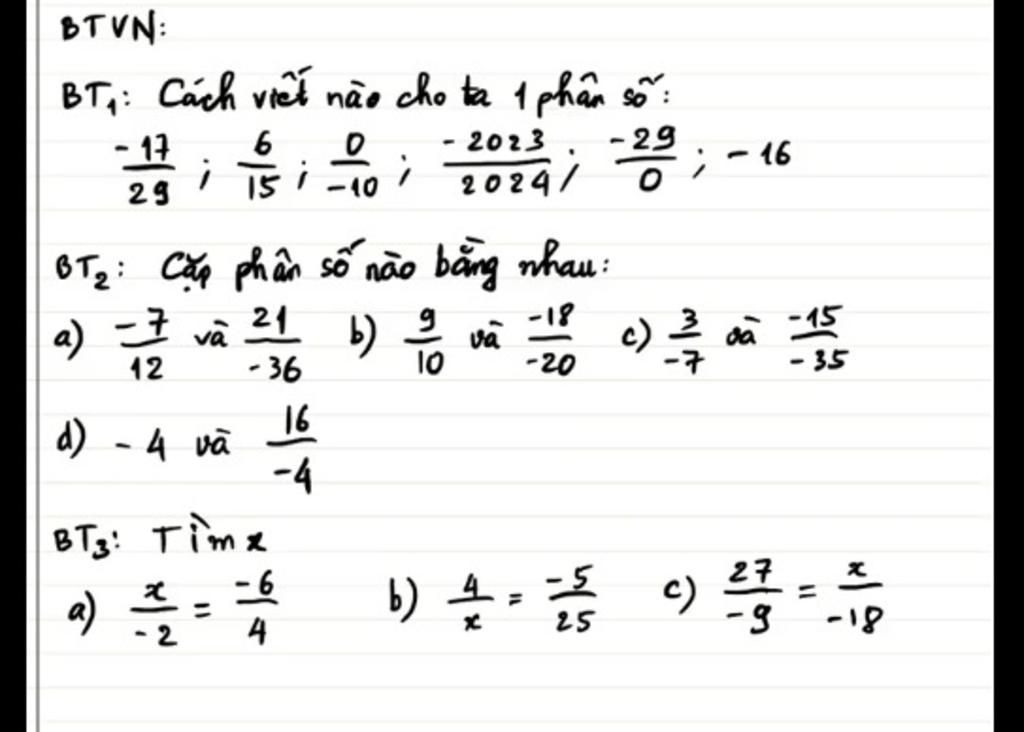 BTVN:
BT₁: Cách viết nào cho ta 1 phân số:
-17/29 ; 6/15 ; 0/-10 ; -2023/2024 ; -29/0 ; -16
BT₂: Cặp phân số nào bằng nhau:
a) -7/12 và 21/-36 b) 9/10 và -18/-20 c) 3/-7 và -15/-35
d) -4 và 16/-4
BT₃: Tìm x
a) x/-2 = -6/4 b) 4/x = -5/25 c) 27/-9 = x/-18